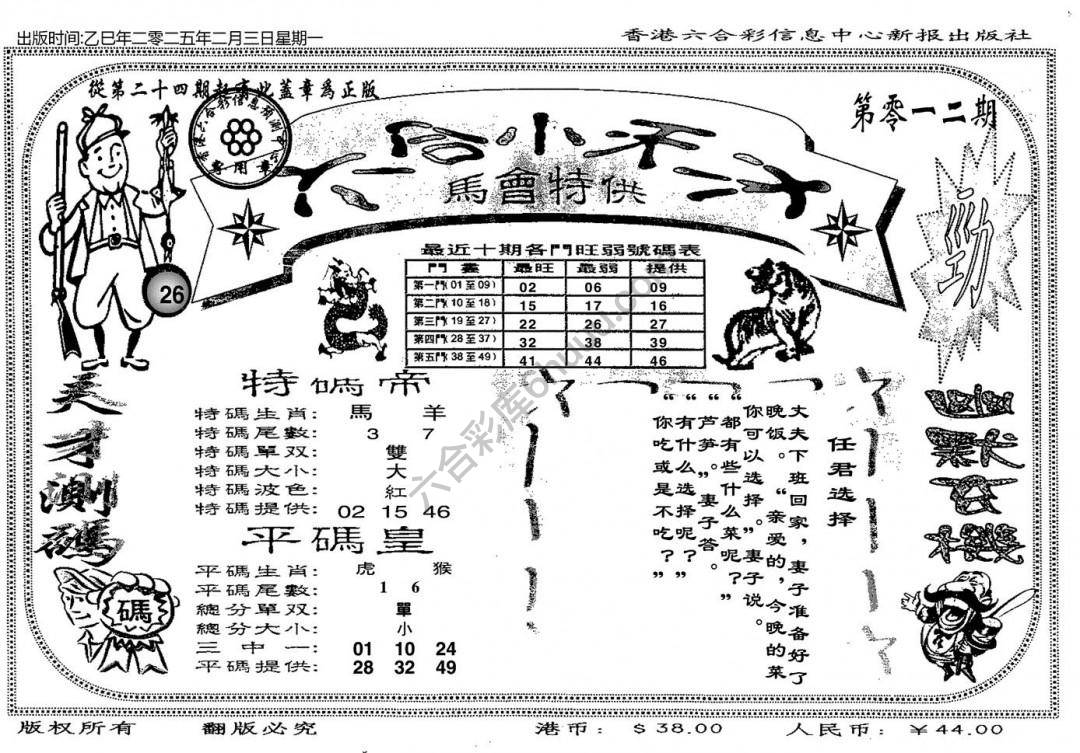 出版时间:乙巳年二零二五年二月三日星期一
香港六合彩信息中心新报出版社
從第二十四期起有此蓋章爲正版
專用章
第零一二期
馬會特供
勁
26
最近十期各門旺弱號碼表
門畫 最旺 最弱 提供
第一門(01至09) 02 06 09
第二門(10至18) 15 17 16
第三門(19至27) 22 26 27
第四門(28至37) 32 38 39
第五門(38至49) 41 44 46
天才測碼
碼
特碼帝
特碼生肖: 馬 羊
特碼尾數: 3 7
特碼單双: 雙
特碼大小: 大
特碼波色: 紅
特碼提供: 02 15 46
平碼皇
平碼生肖: 虎 猴
平碼尾數: 1 6
總分單双: 單
總分大小: 小
三中一: 01 10 24
平碼提供: 28 32 49
任君选择
丈夫下班回家，妻子准备好了
晚饭。“亲爱的，今晚的菜
你可以选择。”妻子说。
“都有些什么菜呢？”
“芦笋。”妻子答。
“有什么选择呢？”
“你吃或是不吃？”
六合彩库6huuu.com
版权所有
翻版必究
港币: $38.00
人民币: ￥44.00